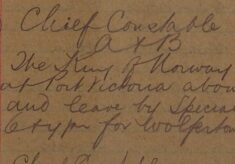 Chief Constable
A & B
The King of Norway
at Port Victoria abou
and leave by Specia
for Wolferton
Chief